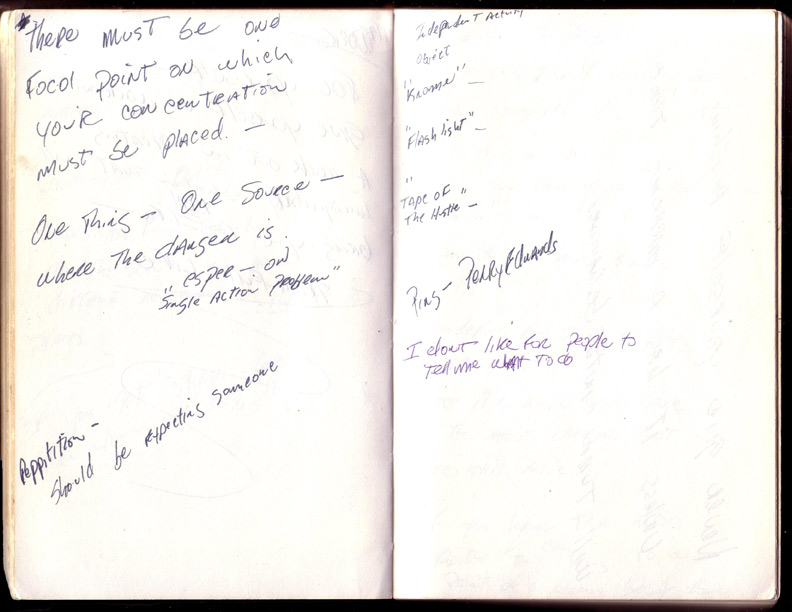 There must be one
Focal point on which
your concentration
must be placed. —
One Thing — One Source —
where the danger is.
"esper — on
Single Action Problem"
Reppitition —
should be expecting someone
Independent Activity
Object
"Knome" —
"Flash light" —
"
Tape of "
The Hotte —
Ping — Perry Edwards
I dont like for People to
Tell me WHAT TO do